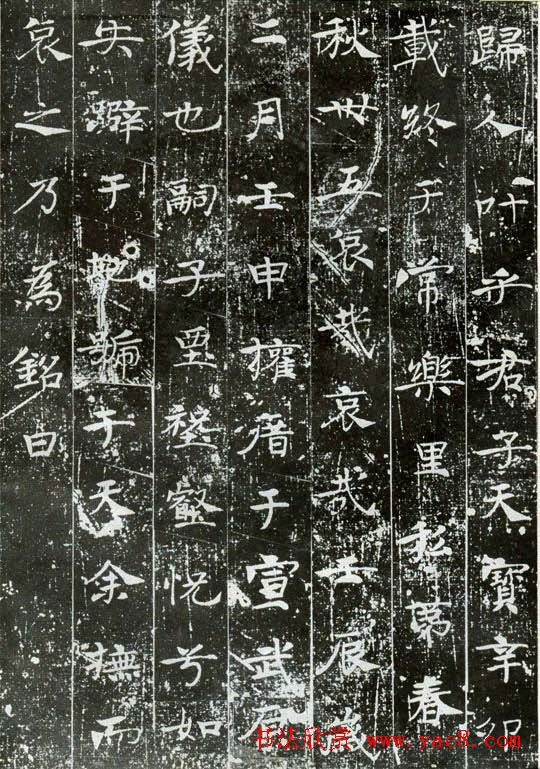 歸人叶乎君子天寶辛卯
載終于常樂里私第春
秋卌五哀哉哀哉壬辰歲
二月壬申權于宣武
儀也嗣子怳兮如
失擗于地號于天余撫而
哀之乃為銘曰
书法欣赏 www.yac8.com